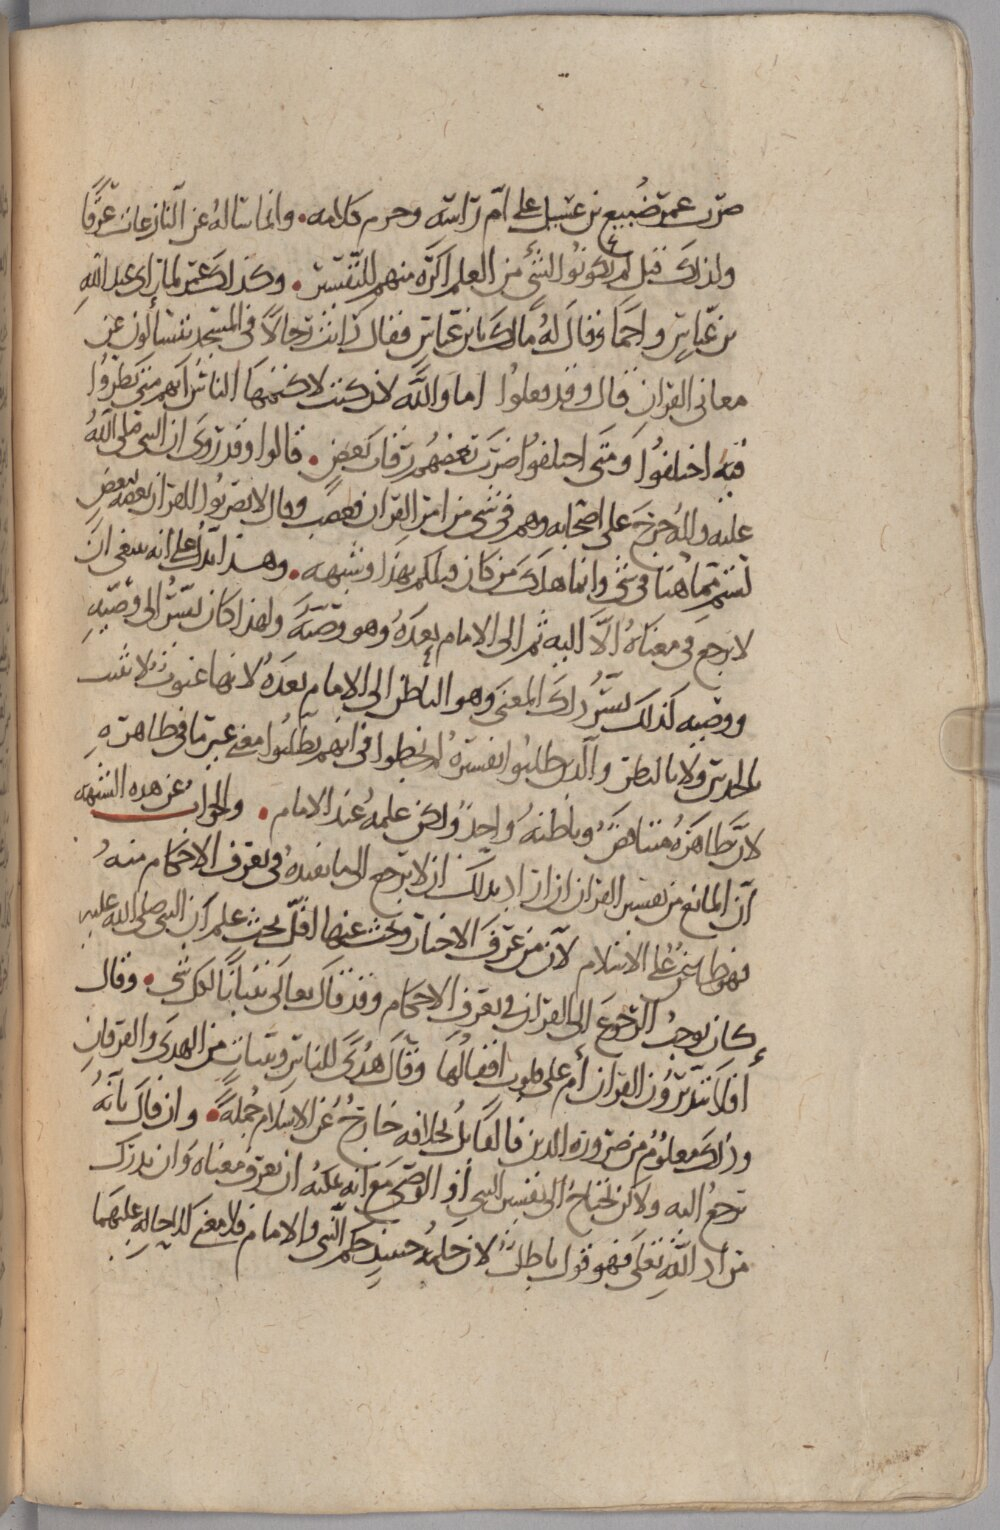 ضرب عمر ضُبيع بن عسيل على امّ راسه وحرم كلامه • وانما ساله عن النازعات غرقًا
ولذلك قيل لم يكونوا لشئ من العلم اكره منهم للتفسير • وكذلك عمر لما راى عبد اللهِ
بن عباسٍ واجما وقال لهُ مالك يا بن عباس فقال رايت رجالًا فى المسجد يتسالون عن
معانى القران قال وقد فعلوا اما والله لان كنت لاكتمها الناس انهم متى نظروا
فيه اختلفوا ومتى اختلفوا ضرب بعضهم رقاب بعض • قالوا وقد روى ان النبى صلى اللهُ
عليه واله خرج على اصحابه وهم فى شئ من امر القران فغضب وقال لا تضربوا القران بعضه ببعض
لستم مما هنا فى شئ وانما هلك من كان قبلكم بهذا وشبهه • وهذا يدل على انه ينبغى ان
لا يرجع فى معناهُ الّا اليه ثم الى الامام بعدهُ وهو وصيّهُ ولهذا كان يسرّ الى وصيّهِ
ووصيه كذلك يسرّ ذلك المعنى وهو الباطن الى الامام بعدهُ لانها غيوبٌ لا تثبت
بالحدس ولا بالنظر والّذين طلبوا تفسيرهُ لم يخطوا فى انهم يطلبوا معنى غير ما فى ظاهرهِ
لانّ ظاهرهُ متناقض وباطنهُ واحدٌ ولكن علمهُ عند الامام • والجواب عن هذه الشبهه
انّ المانع من تفسير القران ان اراد بذلك ان لا يرجع الى ما يفيدهُ فى تعرف الاحكام منهُ
فهو طاعنٌ على الاسلام لانّ من عرف الاخبار وبحث عنها اقلّ بحث علم ان النبى صلى الله عليه
كان يوجبُ الرجوع الى القران فى تعرف الاحكام وقد قال تعالى تبيانًا لكل شئ • وقال
افلا يتدبّرون القران أم على قلوب اقفالها وقال هُدًى للناس وبينات من الهدى والفرقان
وذلك معلومٌ من ضرورة الدين فالقايلُ بخلافه خارجٌ عن الاسلام جُملةً • وان قال بانّهُ
يرجعُ اليه ولاكن نحتاج الى تفسير النبى أو الوصى مع انه يمكنه ان يعرف معناه وان يدرك
مراد اللهِ تعلى فهو قول باطلٌ لان حكمهُ حينيذٍ حكم النبى والامام فلا معنى للاحاله عليهما